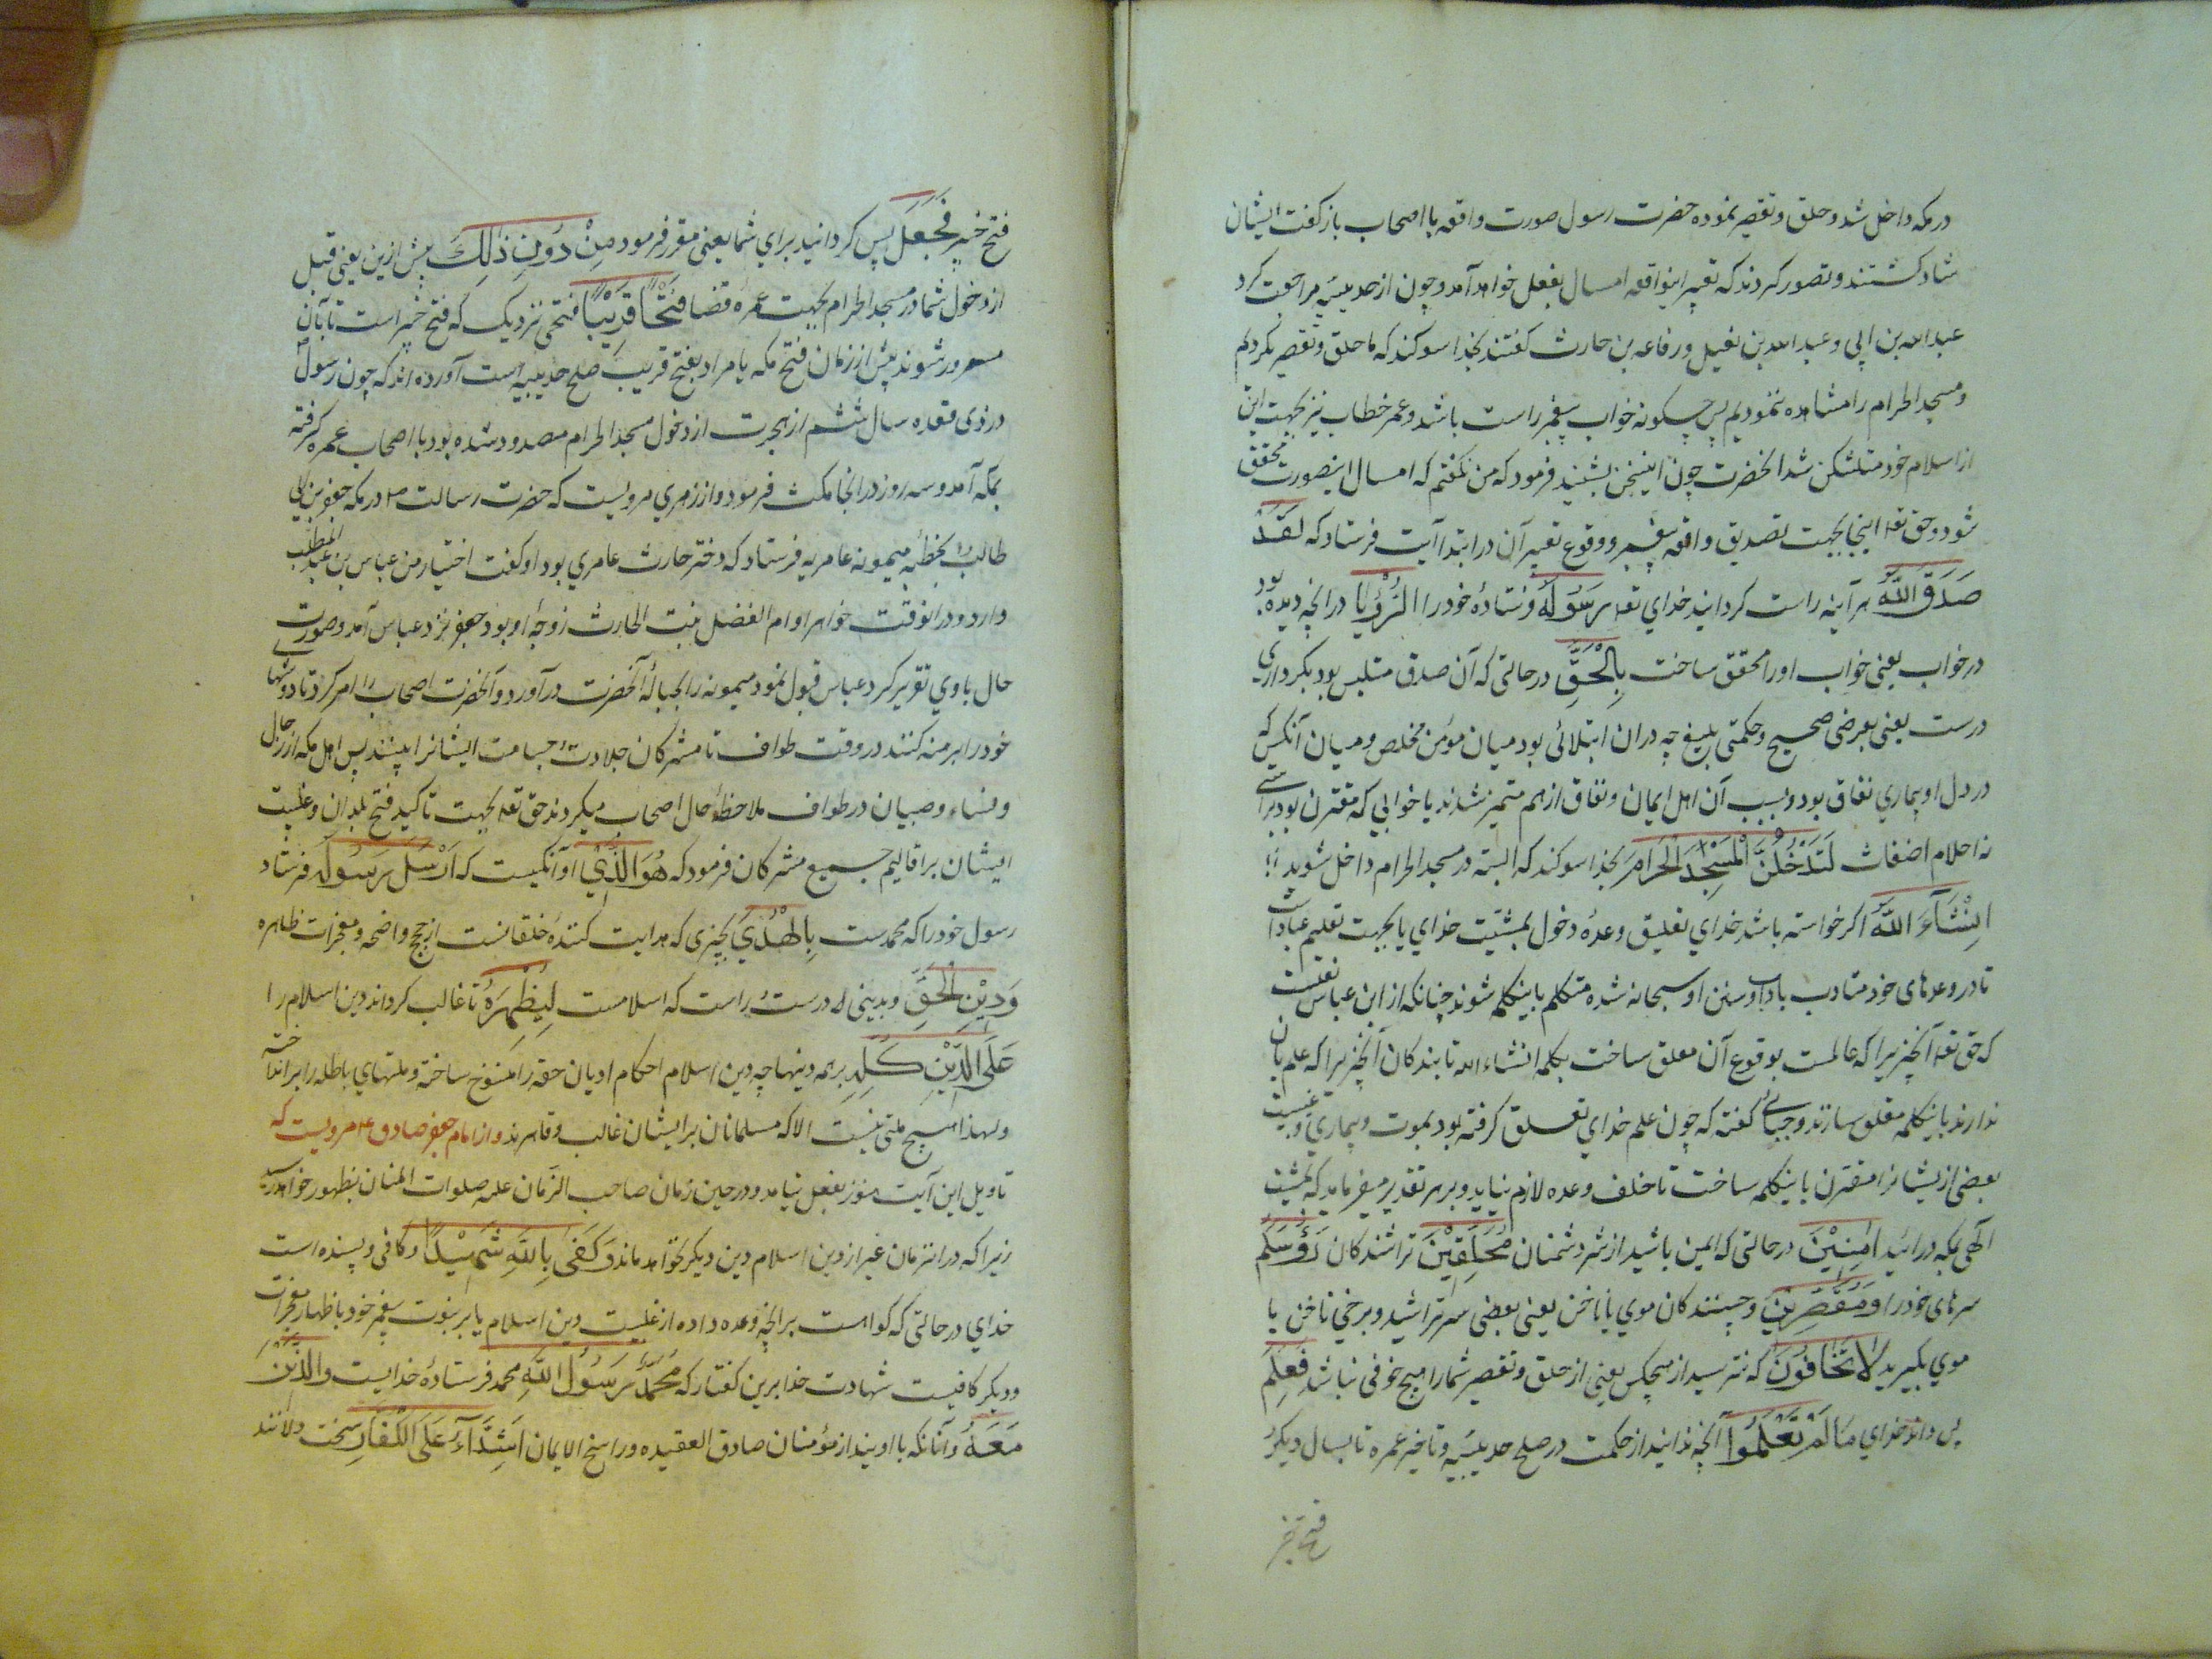 در مکه داخل شد و حلق و تقصیر نموده حضرت رسول صورت واقعه با اصحاب باز گفت ایشان
شاد گشتند و تصور کردند که تعبیر اینواقعه امسال بفعل خواهد آمد و چون از حدیبیه مراجعت کرد
عبد الله بن ابی و عبد الله بن نفیل و رفاعه بن حارث گفتند بخدا سوگند که ما حلق و تقصیر نکردیم
و مسجد الحرام را مشاهده ننمودیم پس چگونه خواب پیغمبر راست باشد و عمر خطاب نیز بجهت این
از اسلام خود متشکن شد انحضرت چون اینسخن بشنید فرمود که من نگفتم که امسال اینصورت محقق
شود و حق تعه اینجا بجهت تصدیق واقعه پیغمبر و وقوع تعبیر آن در ابتدا آیت فرستاد که لَقَدْ
صَدَقَ اللّٰهُ هر آینه راست گردانید خدای تعه رَسُولَهُ فرستادهٔ خود را الرُّؤْیَا در انچه دیده بود
در خواب یعنی خواب او را محقق ساخت بِالْحَقِّ در حالتی که آن صدق متلبس بود بکرداری
درست یعنی بعرضی صحیح و حکمتی بلیغ چه در ان ابتلائی بود میان مؤمن مخلص و میان آنکس که
در دل او بیماری نفاق بود و بسبب آن اهل ایمان و نفاق از هم متمیز شدند یا خوابی که مقترن بود براستی
نه احلام اضغاث لَتَدْخُلُنَّ الْمَسْجِدَ الْحَرَامَ بخدا سوگند که البته در مسجد الحرام داخل شوید
اِنْشَآءَ اللّٰهُ اگر خواسته باشد خدای تعلیق وعدهٔ دخول بمشیت خدای یا بجهت تعلیم عباد است
تا در وعدهای خود متادب باداب و سنن او سبحانه شده متکلم باینکلمه شوند چنانکه از ابن عباس نقلست
که حق تعه آنچیزیرا که عالمست بوقوع آن معلق ساخت بکلمه انشاء الله تا بندکان آنچیزیرا که علم بان
ندارند باینکلمه معلق سازند و جبائی گفته که چون علم خدای تعلق گرفته بود بموت و بیماری و غیبت
بعضی از یشانرا مقترن باینکلمه ساخت تا خلف وعده لازم نیاید و بر هر تقدیر میفرماید که بمشیت
الهی بمکه در ائید اٰمِنِیْنَ در حالتی که ایمن باشید از شر دشمنان مُحَلِّقِیْنَ تراشندکان رُؤُسَکُمْ
سرهای خود را وَ مُقَصِّرِیْنَ و چینندکان موی یا ناخن یعنی بعضی سر تراشید و برخی ناخن یا
موی بگیرید لَا تَخَافُوْنَ که نترسید از هیچکس یعنی از حلق و تقصیر شما را هیچ خوفی نباشد فَعَلِمَ
پس داند خدای مَا لَمْ تَعْلَمُوا آنچه ندانید از حکمت در صلح حدیبیه و تاخیر عمره تا بسال دیگر
فتح خیبر
فتح خیبر فَجَعَلَ پس گردانید برای شما یعنی مقرر فرمود مِنْ دُوْنِ ذٰلِکَ پیش ازین یعنی قبل
از دخول شما در مسجد الحرام بجهت عمرهٔ قضا فَتْحًا قَرِیْبًا فتحی نزدیک که فتح خیبر است تا بآن
مسرور شوند پیش از زمان فتح مکه یا مراد بفتح قریب صلح حدیبیه است آورده اند که چون رسول
در ذی قعده سال ششم از هجرت از دخول مسجد الحرام مصدود شده بود با اصحاب عمره گرفته
بمکه آمد و سه روز در انجا مکث فرمود و از زهری مرویست که حضرت رسالت ص در مکه جعفر بن ابی
طالب را بخطبهٔ میمونه عامریه فرستاد که دختر حارث عامری بود او گفت اختیار من عباس بن عبد المطلب
دارد و در انوقت خواهر او ام الفضل بنت الحارث زوجهٔ او بود جعفر نزد عباس آمد و صورت
حال با وی تقریر کرد عباس قبول نمود میمونه را بحبالهٔ آنحضرت در آورد و آنحضرت اصحاب را امر کرد تا دوشها
خود را برهنه کنند در وقت طواف تا مشرکان جلادت و جسامت ایشانرا ببینند پس اهل مکه از رجال
و نساء و صبیان در طواف ملاحظهٔ حال اصحاب میکردند حق تعه بجهت تاکید فتح بلدان و غلبت
ایشان بر اقالیم جمیع مشرکان فرمود که هُوَ الَّذِیْ او آنکیست که اَرْسَلَ رَسُوْلَهُ فرستاد
رسول خود را که محمدست بِالْهُدٰی بچیزی که هدایت کنندهٔ خلقانست از حجج واضحه و معجزات ظاهره
وَدِیْنِ الْحَقِّ و بدینی درست و راست که اسلامست لِیُظْهِرَهُ تا غالب گرداند دین اسلام را
عَلَی الدِّیْنِ کُلِّهِ بر همه دینها چه دین اسلام احکام ادیان حقه را منسوخ ساخته و ملتهای باطله را بر انداخته
و لهذا هیچ ملتی نیست الا که مسلمانان بر ایشان غالب و قاهرند و از امام جعفر صادق ع مرویست که
تاویل این آیت هنوز بفعل نیامده و در حین زمان صاحب الزمان علیه صلوات المنان بظهور خواهد رسید
زیرا که در انزمان غیر از دین اسلام دین دیگر نخواهد ماند وَ کَفٰی بِاللّٰهِ شَهِیْدًا و کافی و پسنده است
خدای در حالتی که گواهست بر انچه وعده داده از غلبت دین اسلام یا بر نبوت پیغمبر خود باظهار معجزات
و دیگر کافیست شهادت خدا برین گفتار که مُحَمَّدٌ رَسُوْلُ اللّٰهِ محمد فرستادهٔ خدایست وَالَّذِیْنَ
مَعَهُ و آنانکه با اویند از مؤمنان صادق العقیده و راسخ الایمان اَشِدَّآءُ عَلَی الْکُفَّارِ سخت دلانند